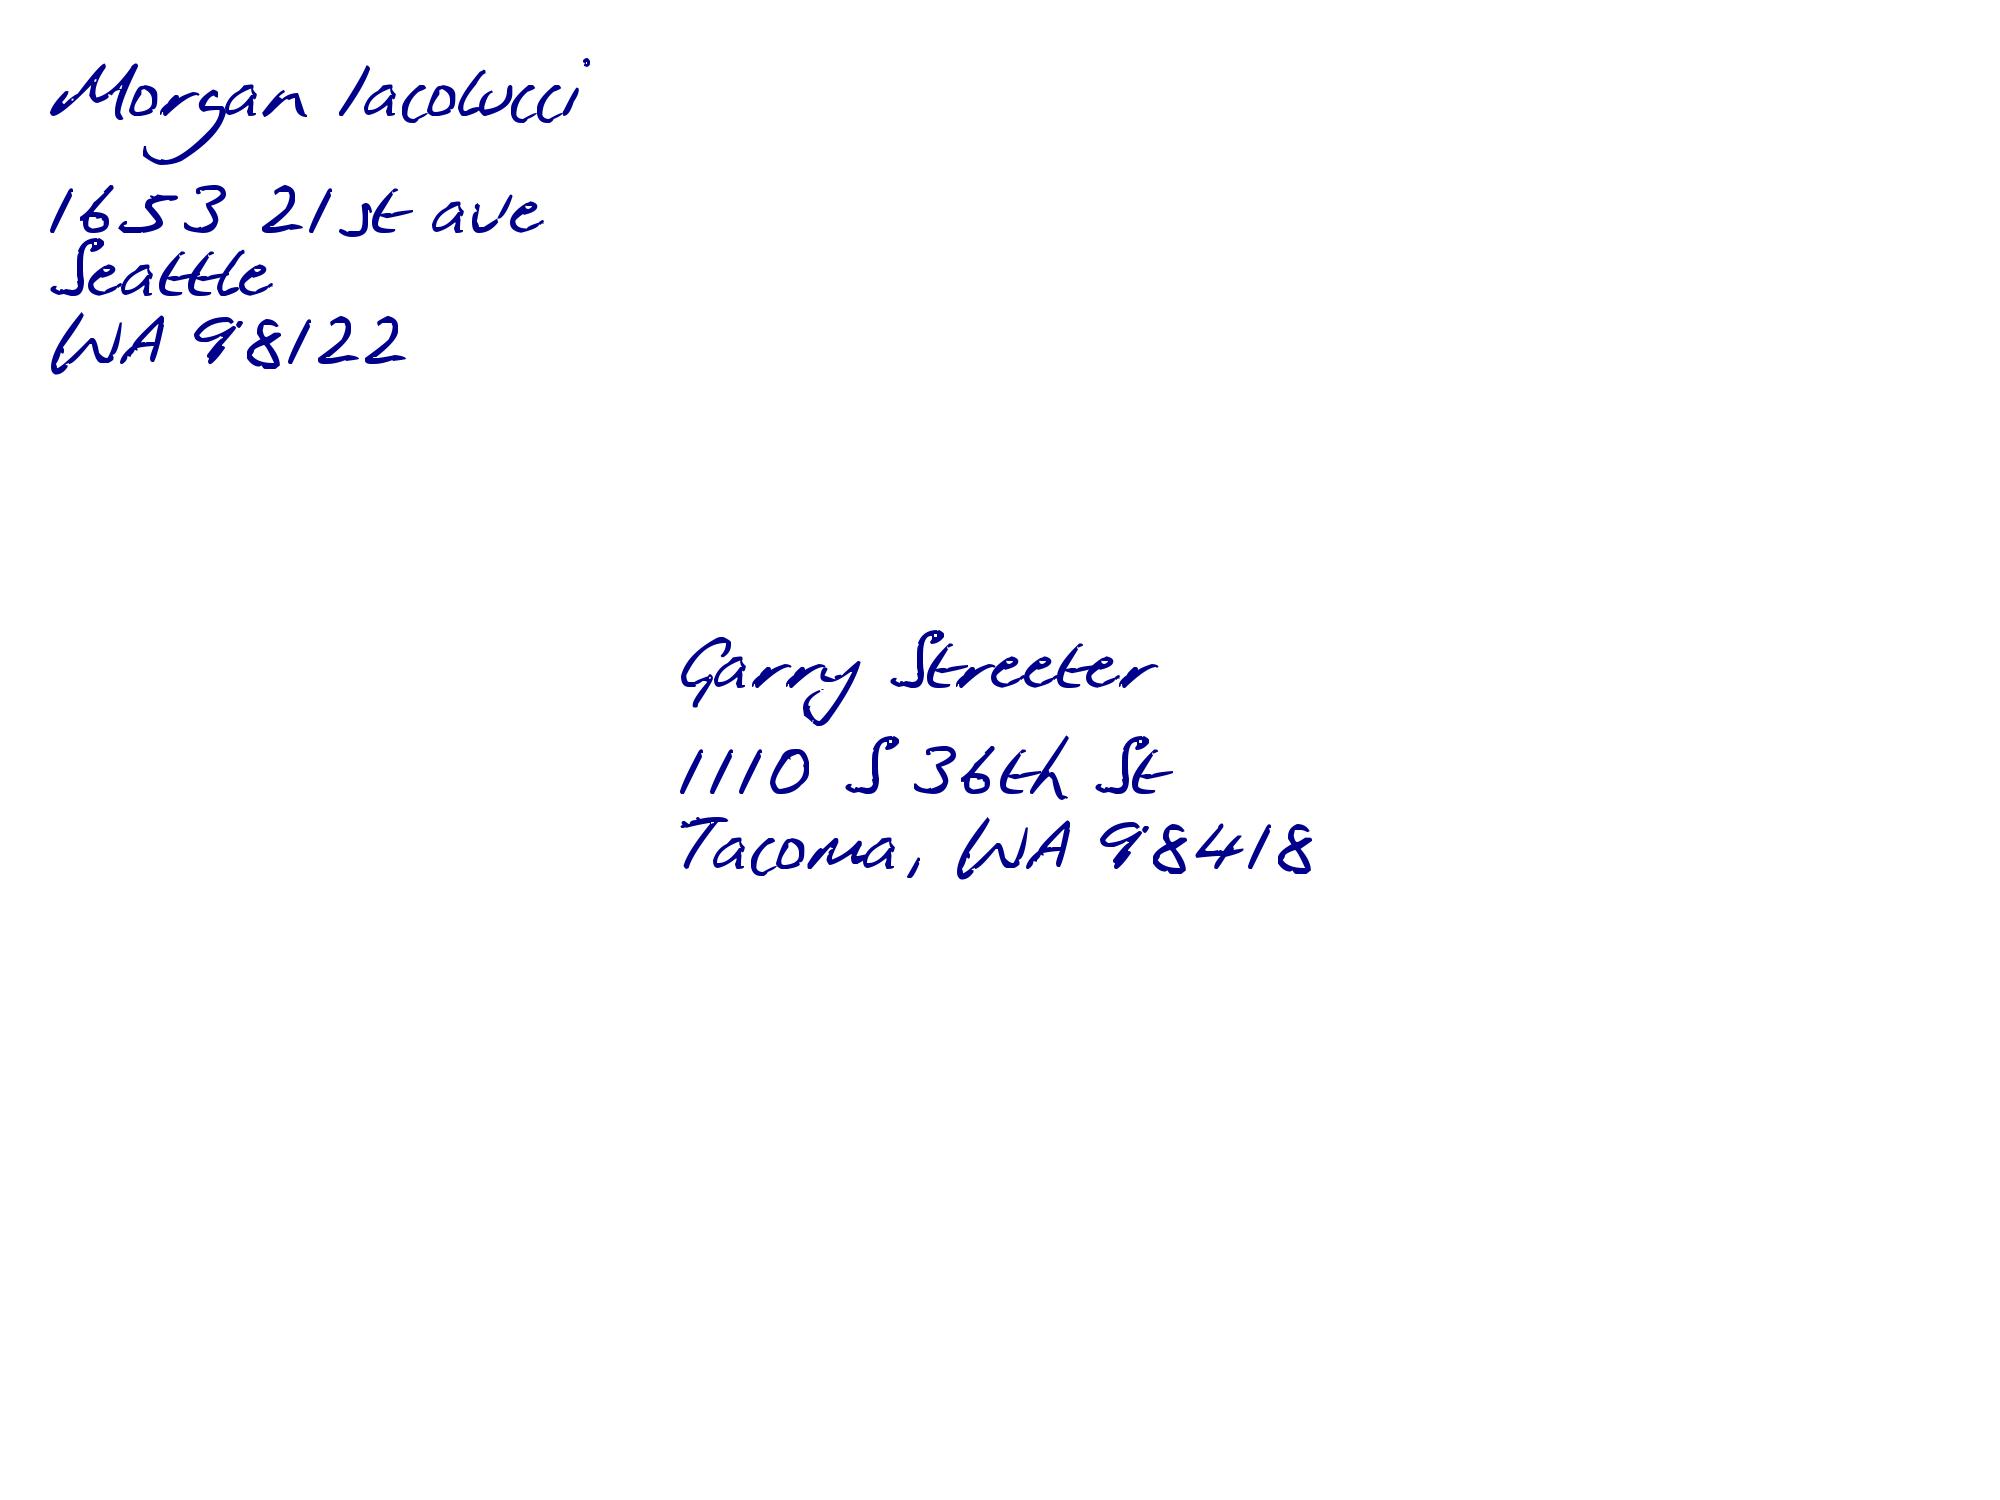 Morgan Iacolucci
1653 21st ave
Seattle
WA 98122
Garry Streeter
1110 S 36th St
Tacoma, WA 98418